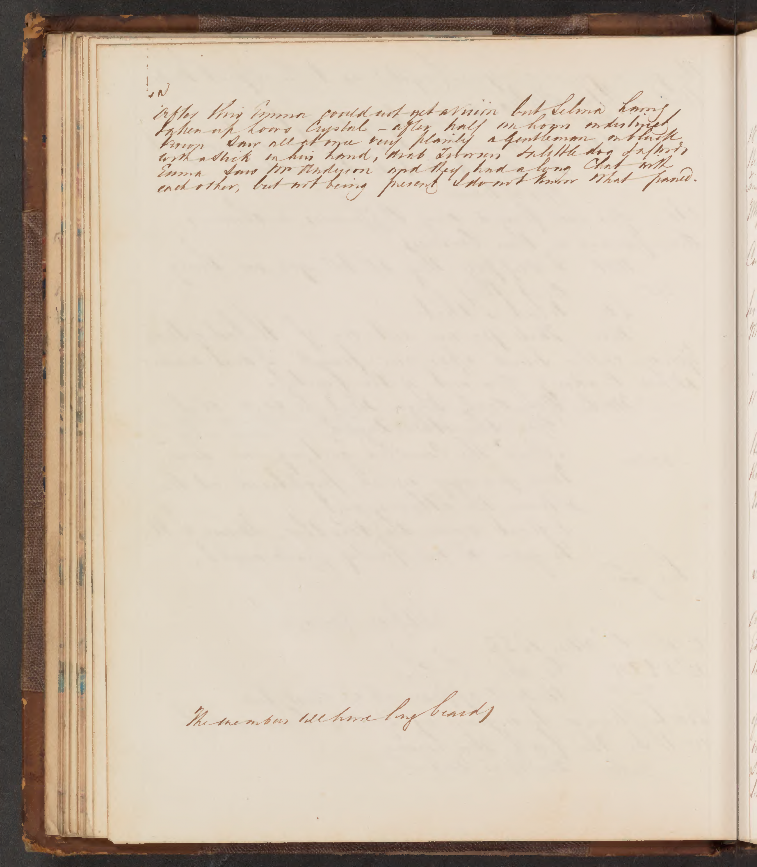 After this Emma could not get a vision but Selina having
taken up Lovis Crystal - after half an hours indistinct
vision saw all at once very plainly a Gentleman in black
with a stick in his hand, drab Trowsers & a little dog
Emma saw Mr Anderson and they had a long Chat with
each other, but not being present I do not know what passed.
The members all have long beards